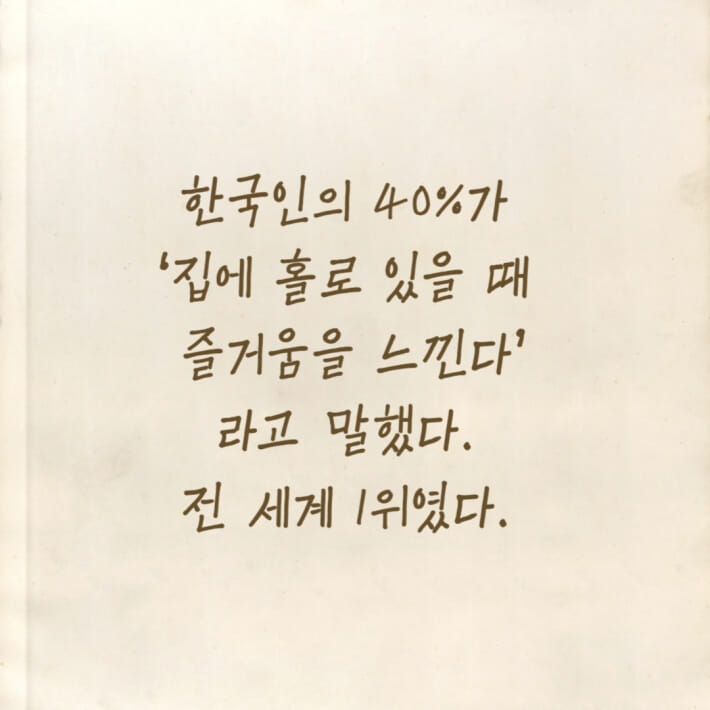 한국인의 40%가
‘집에 홀로 있을 때
즐거움을 느낀다’
라고 말했다.
전 세계 1위였다.